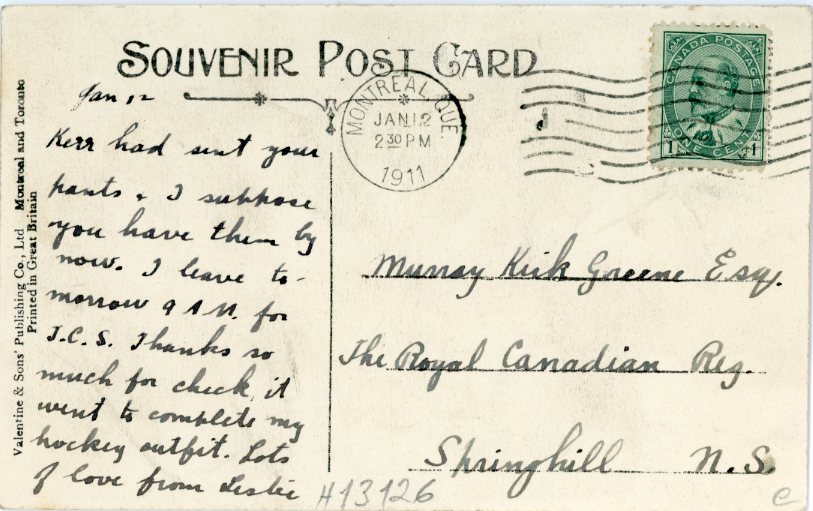 SOUVENIR POST CARD
Jan 12
Kerr had sent your
pants & I suppose
you have them by
now. I leave to-
morrow 9 A.M. for
T.C.S. Thanks so
much for check, it
went to complete my
hockey outfit. Lots
of love from Leslie
Valentine & Sons' Publishing Co., Ltd Montreal and Toronto
Printed in Great Britain
MONTREAL, QUE.
JAN 12
2 30 PM
1911
CANADA POSTAGE
ONE CENT
1 1
Murray Kirk Greene Esq.
The Royal Canadian Reg.
Springhill N.S.
H13126
e